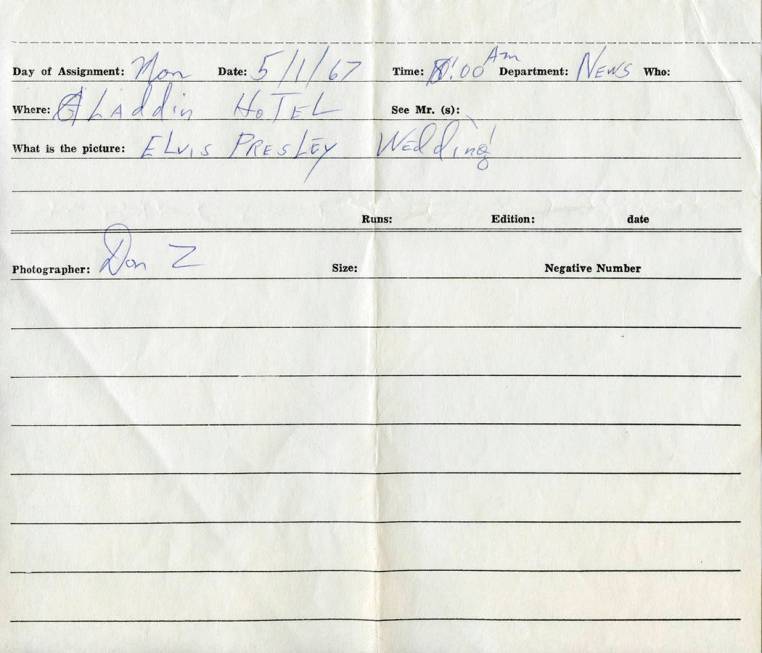 Day of Assignment: Mon Date: 5/1/67 Time: :00 Am Department: News Who:
Where: ALAddin HoTEL See Mr. (s):
What is the picture: ELvis PRESLEy Wedding!
Runs: Edition: date
Photographer: Don Z Size: Negative Number